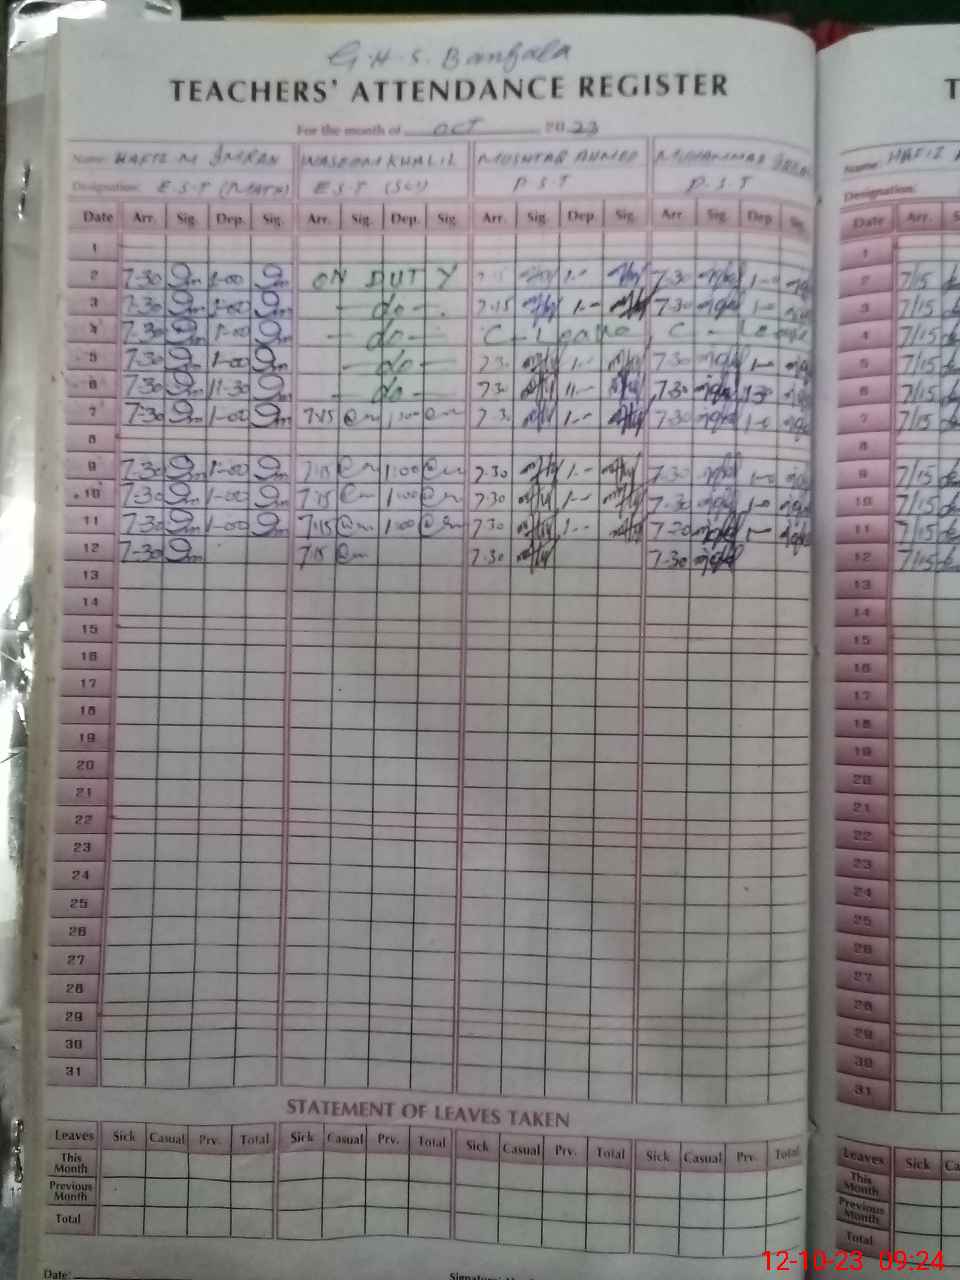 G.H.S. Bambala
TEACHERS' ATTENDANCE REGISTER
For the month of OCT 2023
Name: HAFIZ M IMRAN WASEEM KHALIL MUSHTAQ AHMED MUHAMMAD
Designation: E.S.T (MATH) E.S.T (SCI) P.S.T P.S.T
Date Arr. Sig. Dep. Sig. Arr. Sig. Dep. Sig. Arr. Sig. Dep. Sig. Arr. Sig. Dep. Sig.
1
2 7-30 1-00 ON DUTY 7-30 1-0
3 7-30 1-00 - do - 7-15 1-- 7-30 1-0
4 7-30 1-00 - do - C - Leave C - Leave
5 7-30 1-00 - do - 7-30 1-- 7-30 1-0
6 7-30 11-30 - do - 7-30 11-- 7-30
7 7-30 1-00 7:15 1:00 7-30 1-- 7-30 1-0
8
9 7-30 1-00 7:15 1:00 7-30 1-- 7-30 1-0
10 7-30 1-00 7:15 1:00 7-30 1-- 7-30 1-0
11 7-30 1-00 7:15 1:00 7-30 1-- 7-30
12 7-30 7:15 7-30 7-30
13
14
15
16
17
18
19
20
21
22
23
24
25
26
27
28
29
30
31
STATEMENT OF LEAVES TAKEN
Leaves Sick Casual Prv. Total Sick Casual Prv. Total Sick Casual Prv. Total Sick Casual Prv. Total
This Month
Previous Month
Total
Date:
T
Name: HAFIZ
Designation:
Date Arr.
1
2 7/15
3 7/15
4 7/15
5 7/15
6 7/15
7 7/15
8
9 7/15
10 7/15
11 7/15
12 7/15
13
14
15
16
17
18
19
20
21
22
23
24
25
26
27
28
29
30
31
Leaves Sick
This Month
Previous Month
Total
12-10-23 09:24